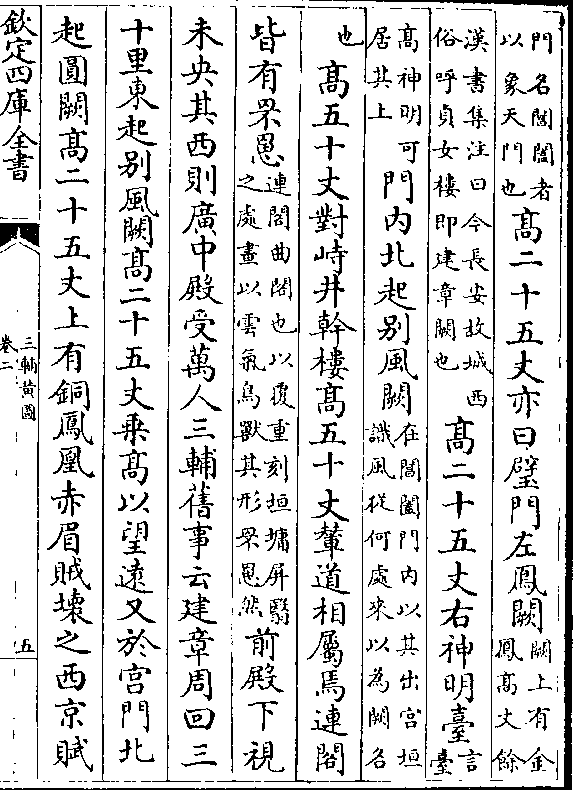 門名閶闔者以象天門也高二十五丈亦曰璧門左鳳闕闕上有金鳳高丈餘
漢書集注曰今長安故城西俗呼貞女樓即建章闕也高二十五丈右神明臺言臺
高神明可居其上門内北起别風闕在閶闔門内以其出宫垣識風從何處來以為闕名
也高五十丈對峙井幹樓高五十丈輦道相屬焉連閣
皆有罘罳連閣曲閣也以覆重刻垣墉屏翳之處畫以雲氣鳥獸其形罘罳然前殿下視
未央其西則廣中殿受萬人三輔舊事云建章周回三
十里東起别風闕高二十五丈乗高以望遠又於宫門北
起圓闕高二十五丈上有銅鳳凰赤眉賊壊之西京賦
欽定四庫全書
三輔黄圖
卷二
五